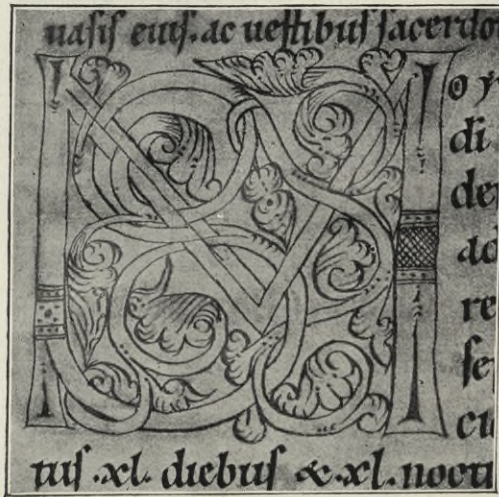 uaſiſ eiuſ. ac ueſtibuſ ſacerdo
Moy
di
de
ad
re
ſe
cu
tuſ .xl. diebuſ &.xl. noctu